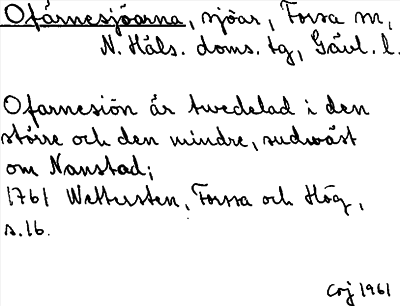 Ofärnesjöarna, sjöar, Forsa sn,
N. Häls. doms. tg, Gävl. l.
Ofarnesiön är twedelad i den
större och den mindre, sudwäst
om Nanstad;
1761 Wettersten, Forssa och Hög,
s. 16.
Crj 1961